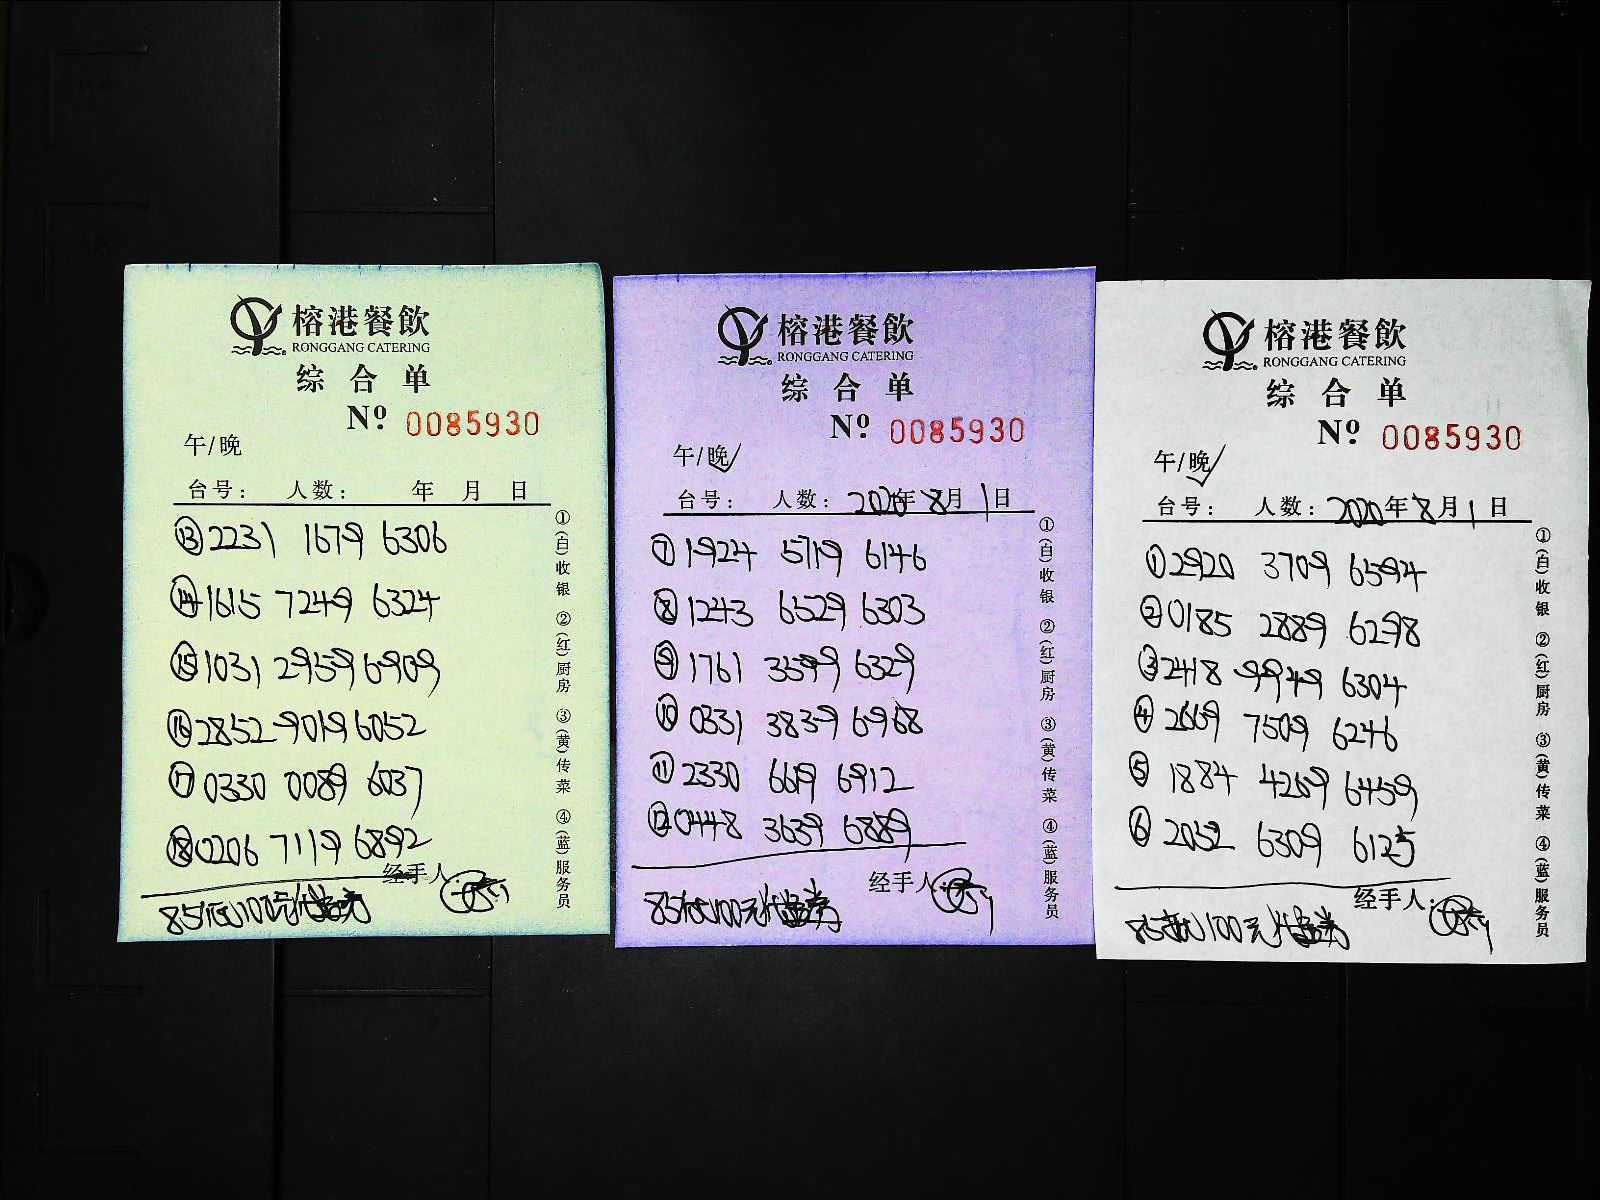 榕港餐飲
RONGGANG CATERING
综合单
Nº 0085930
午/晚
台号： 人数： 年 月 日
⑬ 2231 1679 6306
⑭ 1615 7249 6324
⑮ 1031 2959 6909
⑯ 2852 9019 6052
⑰ 0330 0089 6037
⑱ 0206 7119 6892
经手人：
85抵100元代金券
①(白)收银 ②(红)厨房 ③(黄)传菜 ④(蓝)服务员
榕港餐飲
RONGGANG CATERING
综合单
Nº 0085930
午/晚✓
台号： 人数： 2020年8月1日
⑦ 1924 5719 6146
⑧ 1243 6529 6303
⑨ 1761 3599 6329
⑩ 0331 3839 6968
⑪ 2330 6619 6912
⑫ 0448 3639 6889
经手人：
85抵100元代金券
①(白)收银 ②(红)厨房 ③(黄)传菜 ④(蓝)服务员
榕港餐飲
RONGGANG CATERING
综合单
Nº 0085930
午/晚✓
台号： 人数： 2020年8月1日
① 2920 3709 6594
② 0185 2889 6298
③ 2418 9949 6304
④ 2669 7509 6246
⑤ 1884 4269 6459
⑥ 2052 6309 6125
经手人：
85抵100元代金券
①(白)收银 ②(红)厨房 ③(黄)传菜 ④(蓝)服务员